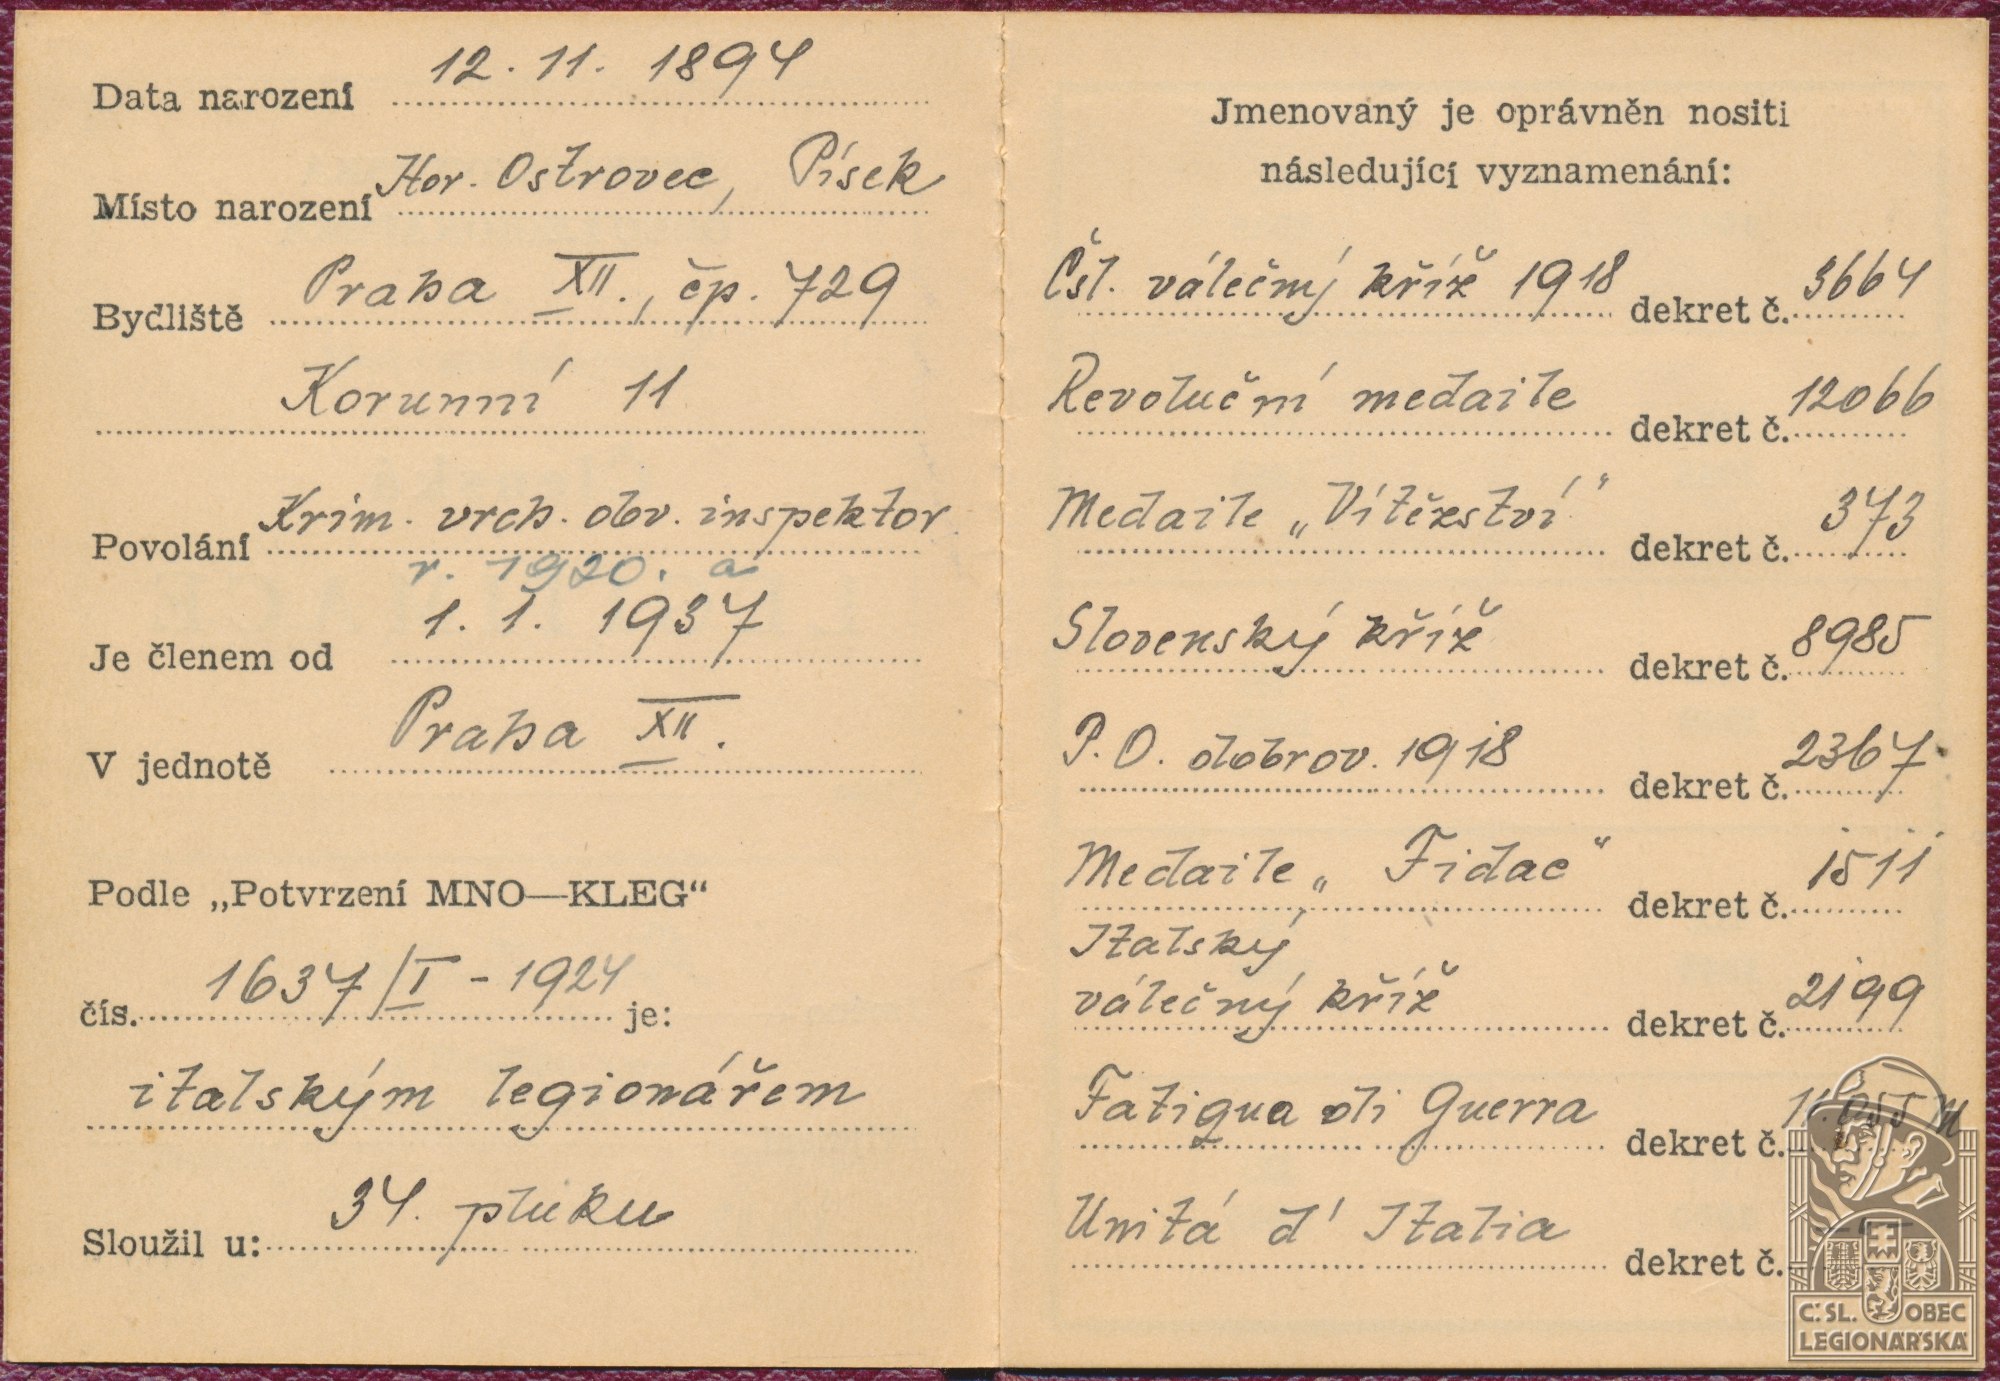 12. 11. 1894
Data narození
Hor. Ostrovec, Písek
Místo narození
Praha XII., čp. 729
Bydliště
Korunní 11
Krim. vrch. obv. inspektor
Povolání
r. 1920. a
1. 1. 1937
Je členem od
Praha XII.
V jednotě
Podle „Potvrzení MNO—KLEG“
čís. 1637/I - 1924 je:
italským legionářem
Sloužil u: 34. pluku
Jmenovaný je oprávněn nositi
následující vyznamenání:
Čsl. válečný kříž 1918 dekret č. 3664
Revoluční medaile dekret č. 12066
Medaile „Vítězství“ dekret č. 373
Slovenský kříž dekret č. 8985
P. O. dobrov. 1918 dekret č. 2367
Medaile „Fidac“ dekret č. 1511
Italský
válečný kříž dekret č. 2199
Fatigua di Guerra dekret č.
Unitá d' Italia dekret č.
Č. SL. OBEC
LEGIONÁŘSKÁ